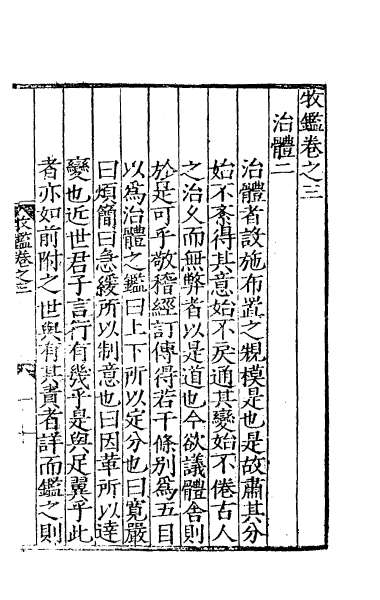 牧鑑卷之三
治體二
治體者設施布置之規模是也是故肅其分
始不紊得其意始不戾通其變始不倦古人
之治久而無弊者以是道也今欲議體舍則
於是可乎敬稽經訂傳得若干條別為五目
以為治體之鑑曰上下所以定分也曰寬嚴
曰煩簡曰急緩所以制意也曰因革所以達
變也近世君子言行有幾乎是與足翼乎此
者亦如前附之世與有其責者詳而鑑之則
牧鑑卷之三